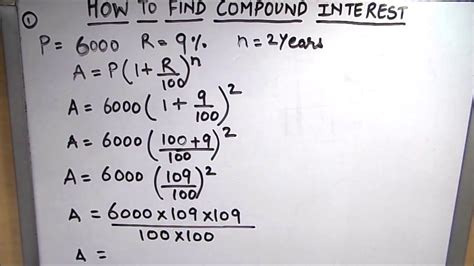 ① HOW TO FIND COMPOUND INTEREST
P = 6000 R = 9% n = 2 Years
A = P(1 + R/100)^n
A = 6000(1 + 9/100)^2
A = 6000(100+9/100)^2
A = 6000(109/100)^2
A = 6000×109×109/100×100
A =